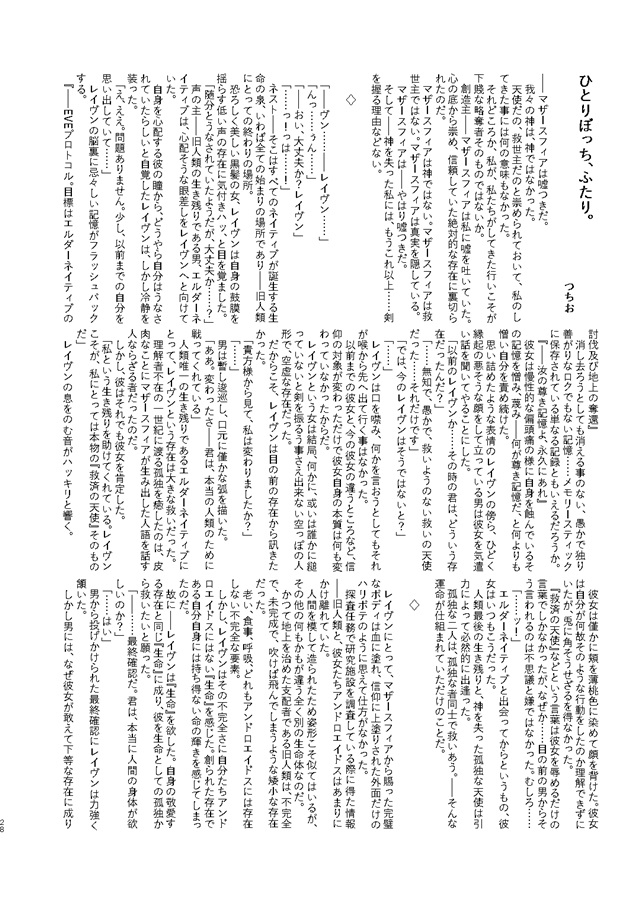 ひとりぼっち、ふたり。
つちお
――マザースフィアは嘘つきだ。
我々の神は、神ではなかった。
天使だの、救世主だのと崇められておいて、私のし
てきた事には何の意味もなかった。
それどころか、私が、私たちがしてきた行いこそが
下賤な略奪者そのものではないか。
創造主――マザースフィアは私に嘘を吐いていた。
心の底から崇め、信頼していた絶対的な存在に裏切ら
れたのだ。
マザースフィアは神ではない。マザースフィアは救
世主ではない。マザースフィアは真実を隠している。
マザースフィアは――やはり嘘つきだ。
そして――神を失った私には、もうこれ以上――剣
を握る理由などない。
◇
「――ヴン……レイヴン……」
「んっ……うん……」
「――おい、大丈夫か？レイヴン」
「……っ！っは……！」
ネスト――そこはすべてのネイティブが誕生する生
命の泉、いわば全ての始まりの場所であり――旧人類
にとっての終わりの場所。
恐ろしく美しい黒髪の女、レイヴンは自身の鼓膜を
揺らす低い声の存在に気付きハッ、と目を覚ました。
「随分とうなされていたようだが、大丈夫か……？」
声の主――旧人類の生き残りである男、エルダーネ
イティブは、心配そうな眼差しをレイヴンへと向けて
いた。
自身を心配する彼の瞳から、どうやら自分はうなさ
れていたらしいと自覚したレイヴンは、しかし冷静を
装った。
「ええ。問題ありません。少し、以前までの自分を
思い出していて……」
レイヴンの脳裏に忌々しい記憶がフラッシュバック
する。
『――EVEプロトコル。目標はエルダーネイティブの
討伐及び地上の奪還』
消し去ろうとしても消える事のない、愚かで独り
善がりなロクでもない記憶……メモリースティック
に保存されている単なる記録ともいえるだろうか。
『――汝の尊き記憶よ、永久にあれ』
彼女は慢性的な偏頭痛の様に自身を蝕んでいるそ
の記憶を憎み、蔑み――何が尊き記憶だ、と何よりも
憎い自分を責め続けた。
思い詰めたような表情のレイヴンの傍ら、ひどく
縁起の悪そうな顔をして立っている男は彼女を気遣
い話を聞いてやることにした。
「以前のレイヴンか……その時の君は、どういう存
在だったんだ？」
「……無知で、愚かで、救いようのない救いの天使
だった……それだけです」
「では、今のレイヴンはそうではないと？」
「……」
レイヴンは口を噤み、何かを言おうとしてもそれ
が喉から先へ出て行く事はなかった。
以前までの彼女と、今の彼女の違うところなど、信
仰の対象が変わっただけで彼女自身の本質は何も変
わっていなかったからだ。
レイヴンという女は結局、何かに、或いは誰かに縋
っていないと剣を振るう事さえ出来ない空っぽの人
形で、空虚な存在だった。
だからこそ、レイヴンは目の前の存在から訊きた
かった。
「貴方様から見て、私は変わりましたか？」
「……」
男は暫し逡巡し、口元に僅かな弧を描いた。
「ああ。変わったさ――君は、本当の人類のために
戦ってくれている」
人類唯一の生き残りであるエルダーネイティブに
とって、レイヴンという存在は大きな救いだった。
理解者不在の一世紀に渡る孤独を癒したのは、皮
肉なことにマザースフィアが生み出した人語を話す
人ならざる者だったのだ。
しかし、彼はそれでも彼女を肯定した。
「私という生き残りを助けてくれている。レイヴン
こそが、私にとっては本物の『救済の天使』そのもの
だ」
レイヴンの息をのむ音がハッキリと響く。
彼女は僅かに頬を薄桃色に染めて顔を背けた。彼女
は自分が何故そのような行動をしたのか理解できずに
いたが、兎に角そうせざるを得なかった。
『救済の天使』などという言葉は彼女を辱めるだけの
言葉でしかなかったが、なぜか……目の前の男からそ
う言われるのは不思議と嫌ではなかった。むしろ……
「……ッー！」
エルダーネイティブと出会ってからというもの、彼
女はいつもこうだった。
人類最後の生き残りと、神を失った孤独な天使は引
力によって必然的に出逢った。
孤独な二人は、孤独な者同士で救いあう。――そんな
運命が仕組まれていただけのことだ。
◇
レイヴンにとって、マザースフィアから賜った完璧
なボディは血に塗れ、信仰に上塗りされた外面だけの
ハリボテのように思えて仕方がなかった。
探査任務で研究施設を調査している際に得た情報
――旧人類と、彼女たちアンドロエイドスはあまりに
かけ離れていた。
人間を模して造られたため姿形こそ似てはいるが、
その他の何もかもが違う全く別の生命体なのだ。
かつて地上を治めた支配者である旧人類は、不完全
で、未完成で、吹けば飛んでしまうような矮小な存在
だった。
老い、食事、呼吸、どれもアンドロエイドスには存在
しない不完全な要素。
しかし、レイヴンはその不完全さに自分たちアンド
ロエイドスにはない『生命』を感じた。創られた存在で
ある自分自身には持ち得ない命の輝きを感じてしまっ
たのだ。
故に――レイヴンは『生命』を欲した。自身の敬愛す
る存在と同じ『生命』に成り、彼を生命としての孤独か
ら救いたいと願った。
「――……最終確認だ。君は、本当に人間の身体が欲
しいのか？」
「……はい」
男から投げかけられた最終確認にレイヴンは力強く
頷いた。
しかし男には、なぜ彼女が敢えて下等な存在に成り
28